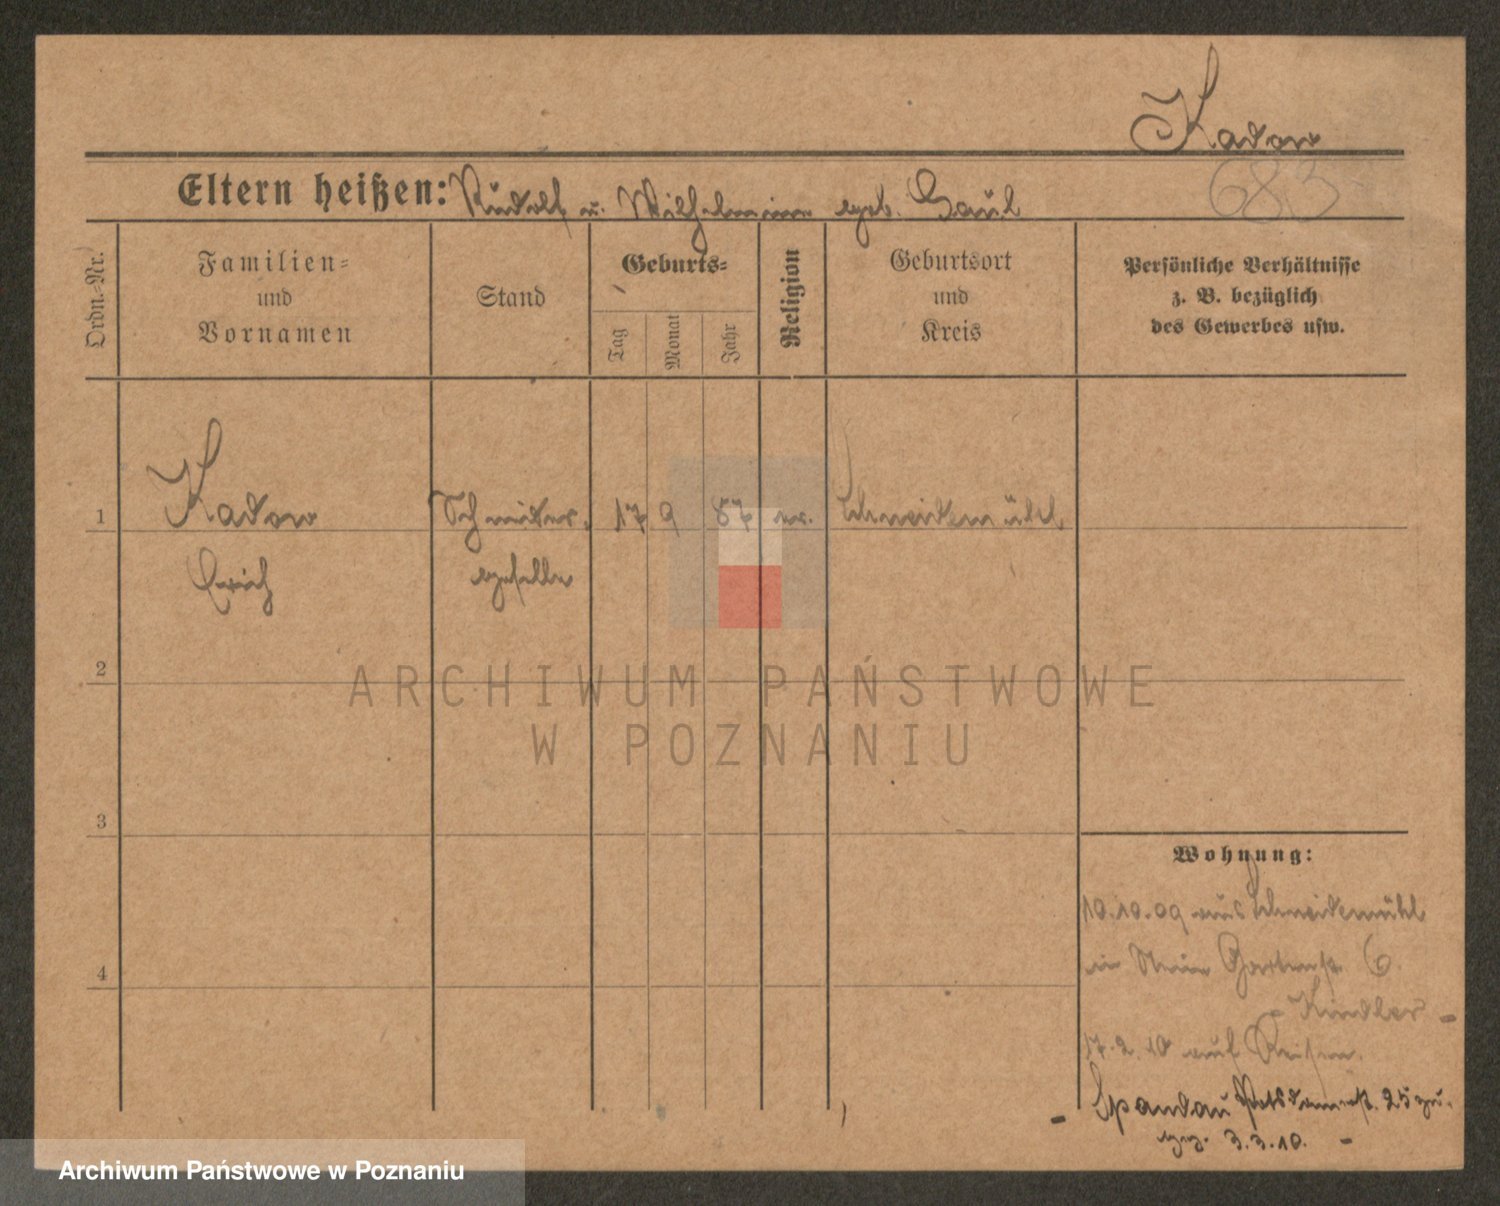 Kadow
683
Eltern heißen: Rudolf u. Wilhelmine geb. Gaul
Ordn.-Nr.
Familien-
und
Vornamen
Stand
Geburts-
Tag
Monat
Jahr
Religion
Geburtsort
und
Kreis
Persönliche Verhältnisse
z. B. bezüglich
des Gewerbes usw.
1 Kadow 17 9 87 ev. Schneidemühl
Erich geselle
2
3
4
Wohnung:
10.10.09 aus Schneidemühl
in Gartenstr. 6.
- Kindler -
17.2.10 auf Reisen.
- Spandau Potsdamerstr. 25 zu-
gez. 3.3.10. -
ARCHIWUM PAŃSTWOWE
W POZNANIU
Archiwum Państwowe w Poznaniu